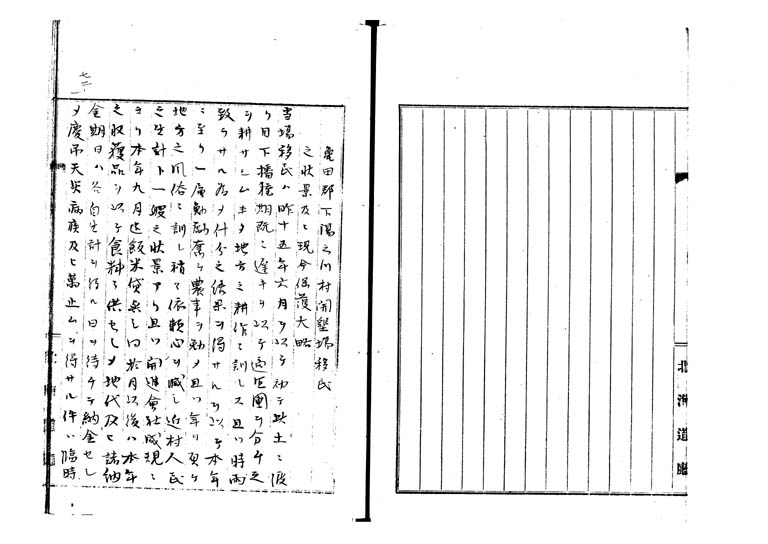 亀田郡下湯之川村開墾場移民
之状景及ヒ現今保護大略
当場移民ハ昨十五年六月ヲ以テ初テ此土ニ渡
リ目下播種期既ニ遅キヲ以テ適宜圃ヲ分チ之
ヲ耕サシムルモ地方之耕作ニ訓レス且ツ時雨
致ラサル為メ什分之結果ヲ得サルヲ以テ本年
ニ至リ一層勤励奮テ農事ヲ勉メ且ツ年ヲ更ヘ
地方之風俗ニ訓レ稍ヤ依頼心ヲ減シ近村人民
之生計ト一般之状景アリ且ツ開進会社成規ニ
ヨリ本年九月迄飯米貸与シ同拾月以後ハ本年
之収穫品ヲ以テ食料ニ供セシメ地代及ヒ諸納
金期日ハ各自生計ヲ得ル日ヲ待チテ納金セシ
メ慶吊天災病疾及ヒ萬止ムヲ得サル件ハ臨時
七二一
北海道廳